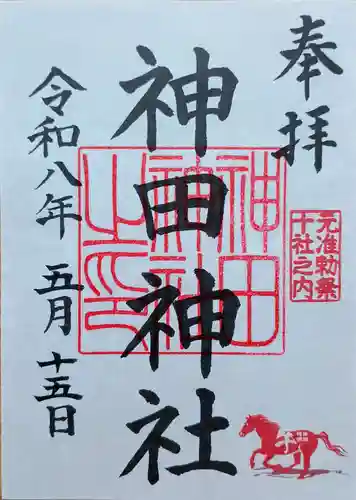 奉拝
元准勅祭
十社之内
神田神社
神田神社之印
令和八年 五月 十五日